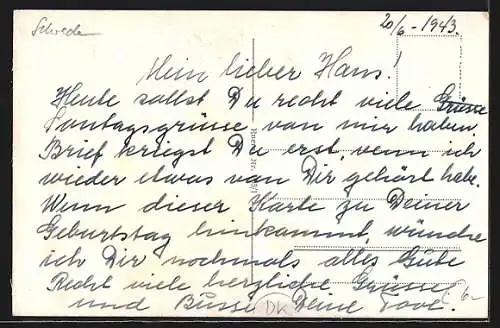 Schweden
20/6 - 1943.
Mein lieber Hans!
Heute sollst Du recht viele Grüsse
Sontagsgrüsse van mir haben.
Brief kriegst Du erst, venn ich
wieder etwas van Dir gehört habe.
Wenn dieser Karte zu Deiner
Geburtstag hinkammt, wünche
ich Dir nochmals alles Gute
Recht viele herzliche Grüsse
und Bussi Deine Tove.
DK
6-